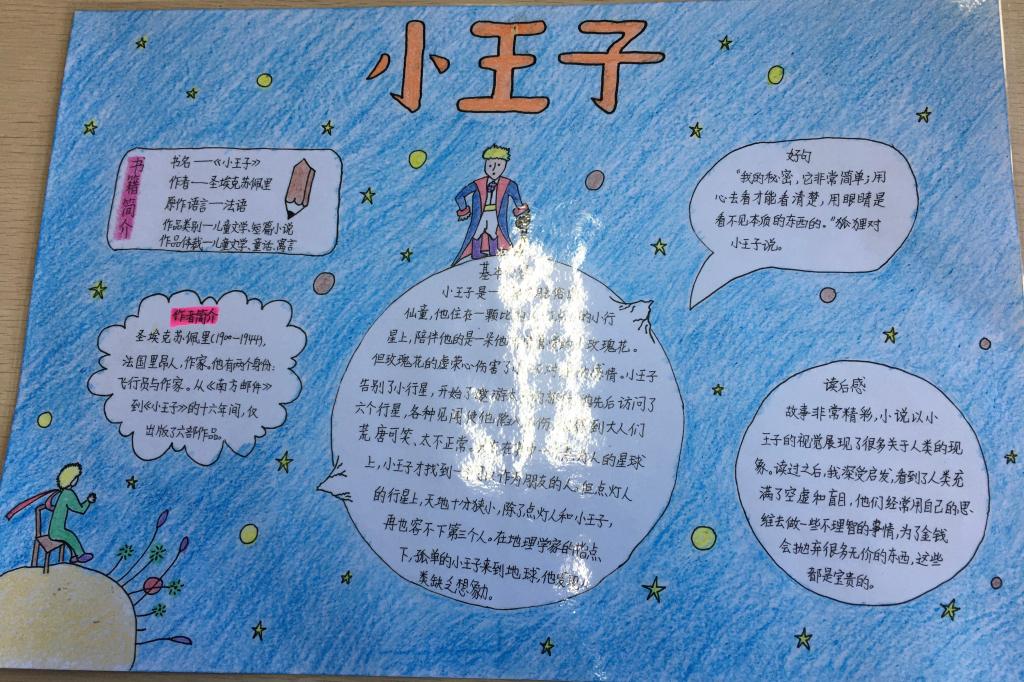 小王子
书籍简介
书名——《小王子》
作者——圣埃克苏佩里
原作语言——法语
作品类别—儿童文学、短篇小说
作品体裁—儿童文学、童话、寓言
好句
“我的秘密，它非常简单；用
心去看才能看清楚，用眼睛是
看不见本质的东西的。”狐狸对
小王子说。
作者简介
圣埃克苏佩里(1900-1944),
法国里昂人，作家。他有两个身份：
飞行员与作家。从《南方邮件》
到《小王子》的十六年间，仅
出版了六部作品。
基本
小王子是一
仙童，他住在一颗比 的小行
星上，陪伴他的是一朵他 玫瑰花。
但玫瑰花的虚荣心伤害了 情。小王子
告别了小行星，开始了遨游 先后访问了
六个行星，各种见闻使他陷入 伤 到大人们
荒唐可笑、太不正常。 人的星球
上，小王子才找到一 作为朋友的人。但点灯人
的行星上，天地十分狭小，除了点灯人和小王子，
再也容不下第三个人。在地理学家的指点
下，孤单的小王子来到地球，他发现
类缺乏想象力。
读后感
故事非常精彩，小说以小
王子的视觉展现了很多关于人类的现
象。读过之后，我深受启发，看到了人类充
满了空虚和盲目，他们经常用自己的思
维去做一些不理智的事情，为了金钱
会抛弃很多无价的东西，这些
都是宝贵的。